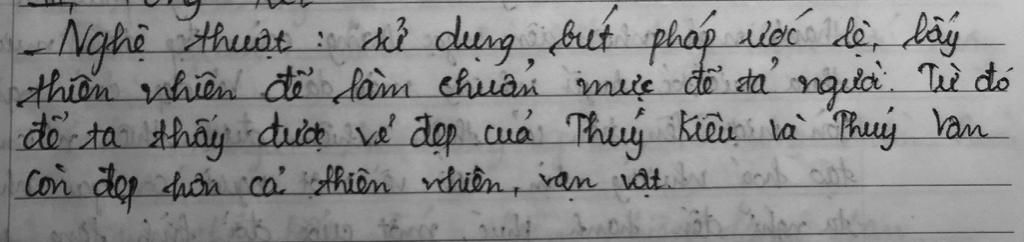 - Nghệ thuật : sử dụng bút pháp ước lệ, lấy
thiên nhiên để làm chuẩn mực để tả người. Từ đó
để ta thấy được vẻ đẹp của Thuý Kiều và Thuý Vân
còn đẹp hơn cả thiên nhiên, vạn vật.